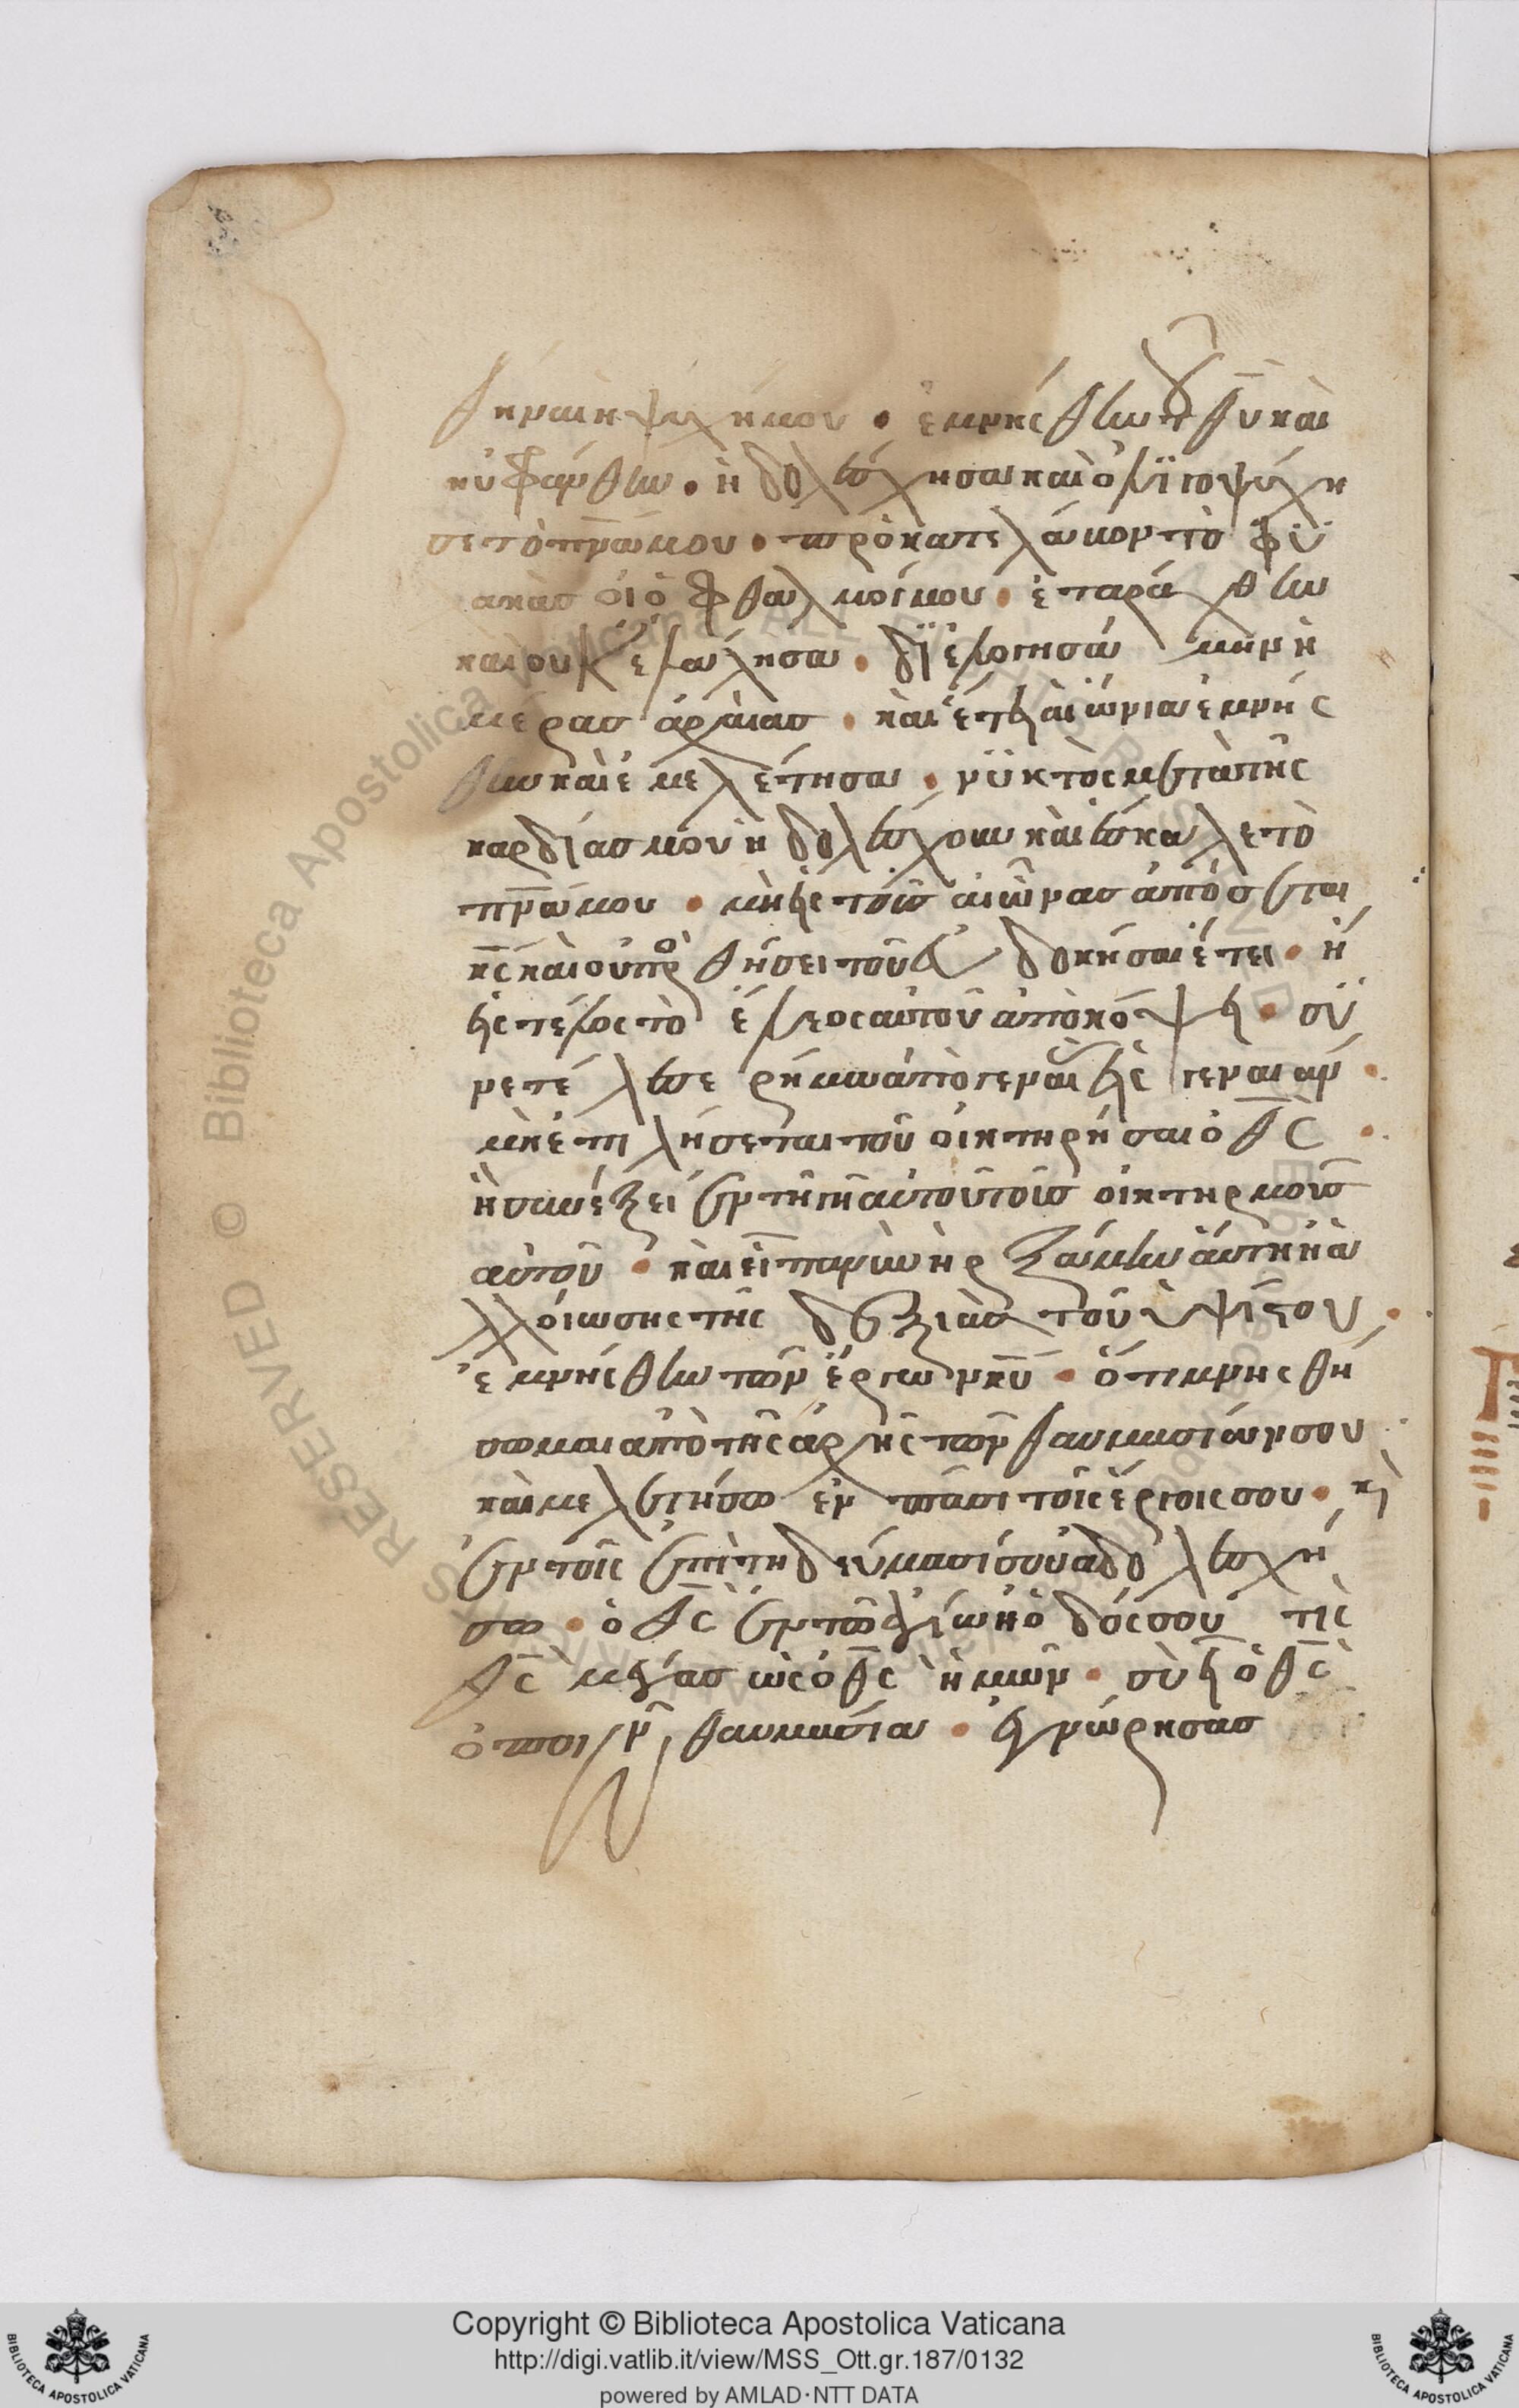 θήναι ἡ ψυχή μου · ἐμνήσθην τοῦ θ̅υ̅ καὶ
ηὐφράνθην · ἠδολεσχησα καὶ ὀλϊγοψύχη
σε τὸ πν̅α̅ μου · προκατελάμοντο φϋ
λακὰσ οἱ ὀφθαλμοί μου · ἐταράχθην
καὶ οὐκ ἐλάλησα · δϊελογησάμην ἡ
μέρασ ἀρχαίασ · καὶ ἔτει αἰώνια ἐμνήσ
θην καὶ ἐμελέτησα · νϋκτὸς μετὰ τῆς
καρδίασ μου ἠδολεσχουν καὶ ἔσκαλε τὸ
πν̅α̅ μου · μὴ εἰς τοὺσ αἰῶνασ ἀπόσεται
κ̅ς̅ καὶ οὐ προσθήσει τοῦ εὐδοκήσαι ἔτει · ἢ
εἰς τέλος τὸ ἔλεος αὐτοῦ ἀποκόψει · σϋ
νετέλεσε ρήμα ἀπὸ γενεᾶς εἰς γενεάν ·
μὴ ἐπιλήσεται τοῦ οἰκτηρήσαι ὁ θ̅ς̅ ·
ἢ συνέξει ἐν τῆ ὀργῆ αὐτοῦ τοὺσ οἰκτηρμοὺσ
αὐτοῦ · καὶ εἶπα νῦν ἠρξάμην αὕτη ἡ ἀ
λλοίωσης τῆς δεξιὰσ τοῦ ὑψίστου ·
ἐμνήσθην τῶν ἔργων κ̅υ̅ · ὅτι μνησθή
σωμαι ἀπὸ τῆς ἀρχῆς τῶν θαυμασίων σου
καὶ μελετήσω ἐν πᾶσι τοῖς ἔργοις σου · κὶ
ἐν τοῖς ἐπιτηδεύμασί σου ἀδολεσχή
σω · ὁ θ̅ς̅ ἐν τῶ ἁγίω ἡ ὁδός σου τίς
θ̅ς̅ μέγασ ὡς ὁ θ̅ς̅ ἡμῶν · σὺ εἶ ὁ θ̅ς̅
ὁ ποιῶν θαυμασία · ἐγνώρησασ
Copyright © Biblioteca Apostolica Vaticana
http://digi.vatlib.it/view/MSS_Ott.gr.187/0132
powered by AMLAD·NTT DATA